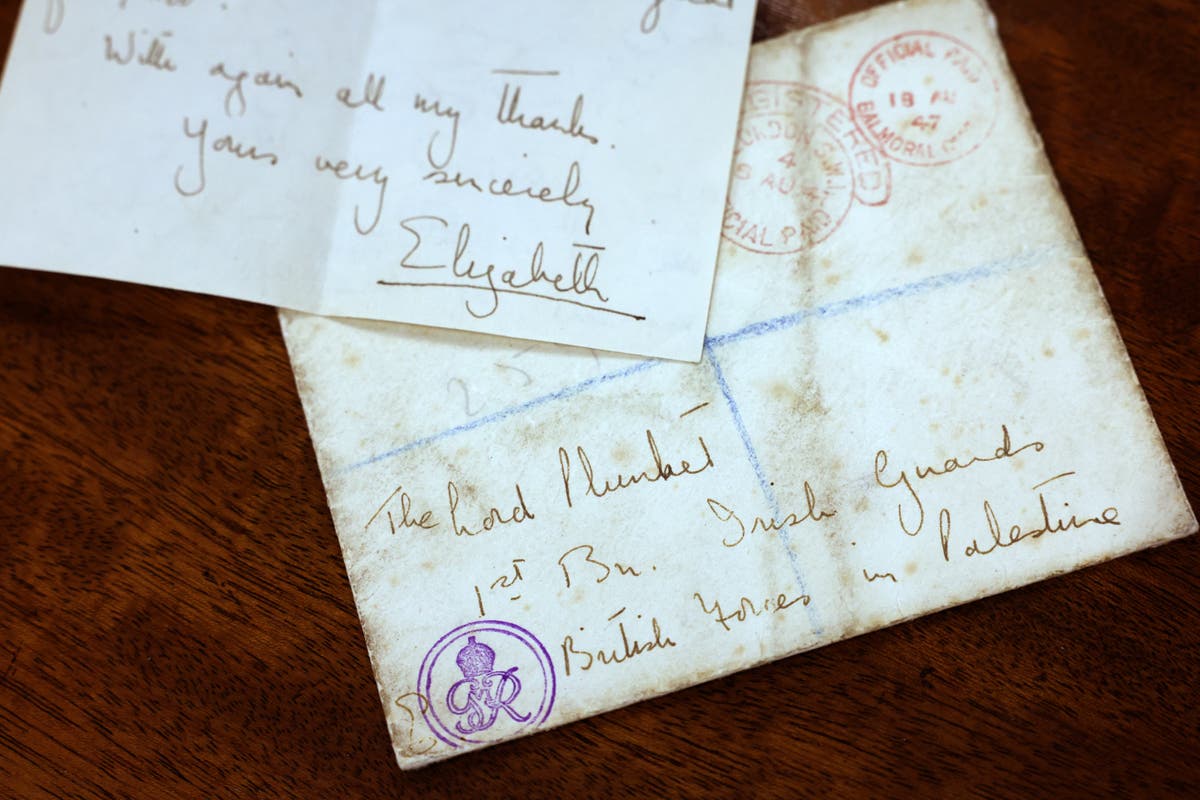 With again all my thanks.
Yours very sincerely
Elizabeth
OFFICIAL PAID
18 AU
47
BALMORAL
REGISTERED
LONDON S.W.1.
4
AU 4
OFFICIAL PAID
25
The Lord Plunket
1st Bn. Irish Guards
British Forces in Palestine
GRVI